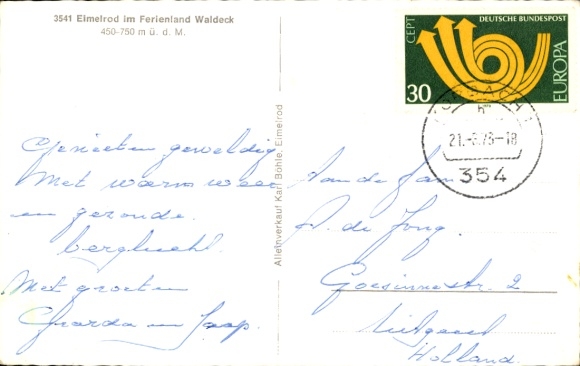 3541 Eimelrod im Ferienland Waldeck
450-750 m ü. d. M.
Genieten geweldig
Met warm weer
en gezonde
berglucht.
Met groeten
en Jaap.
Alleinverkauf Karl Böhle, Eimelrod
CEPT
DEUTSCHE BUNDESPOST
EUROPA
30
21.-8.73-18
354
Aan de Fam
de Jong
2
Uitgeest
Holland.